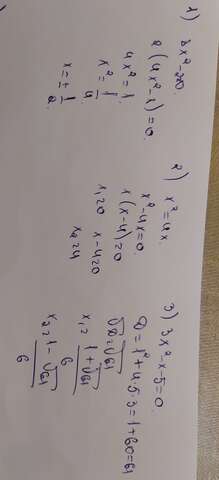 1) 8x²-2=0.
2(4x²-1)=0.
4x²=1.
x²=1/4
x=±1/2.
2) x²=4x.
x²-4x=0.
x(x-4)=0
x₁=0 x-4=0
x₂=4
3) 3x²-x-5=0.
D=1²+4·5·3=1+60=61
√D=√61
x₁=1+√61/6
x₂=1-√61/6